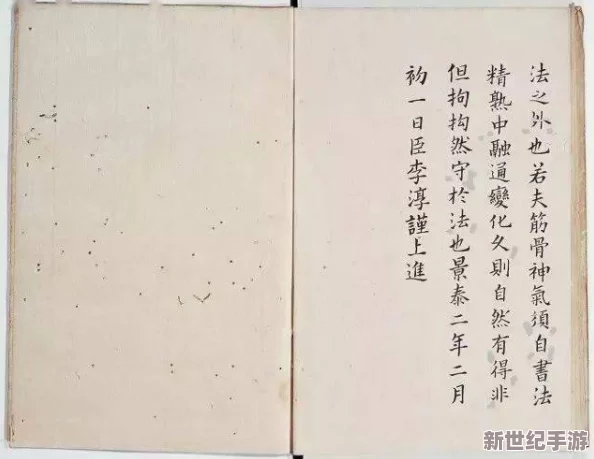 法之外也若夫筋骨神氣須自書法
精熟中融通變化久則自然有得非
但拘拘然守於法也景泰二年二月
初一日臣李淳謹上進
新世纪手游